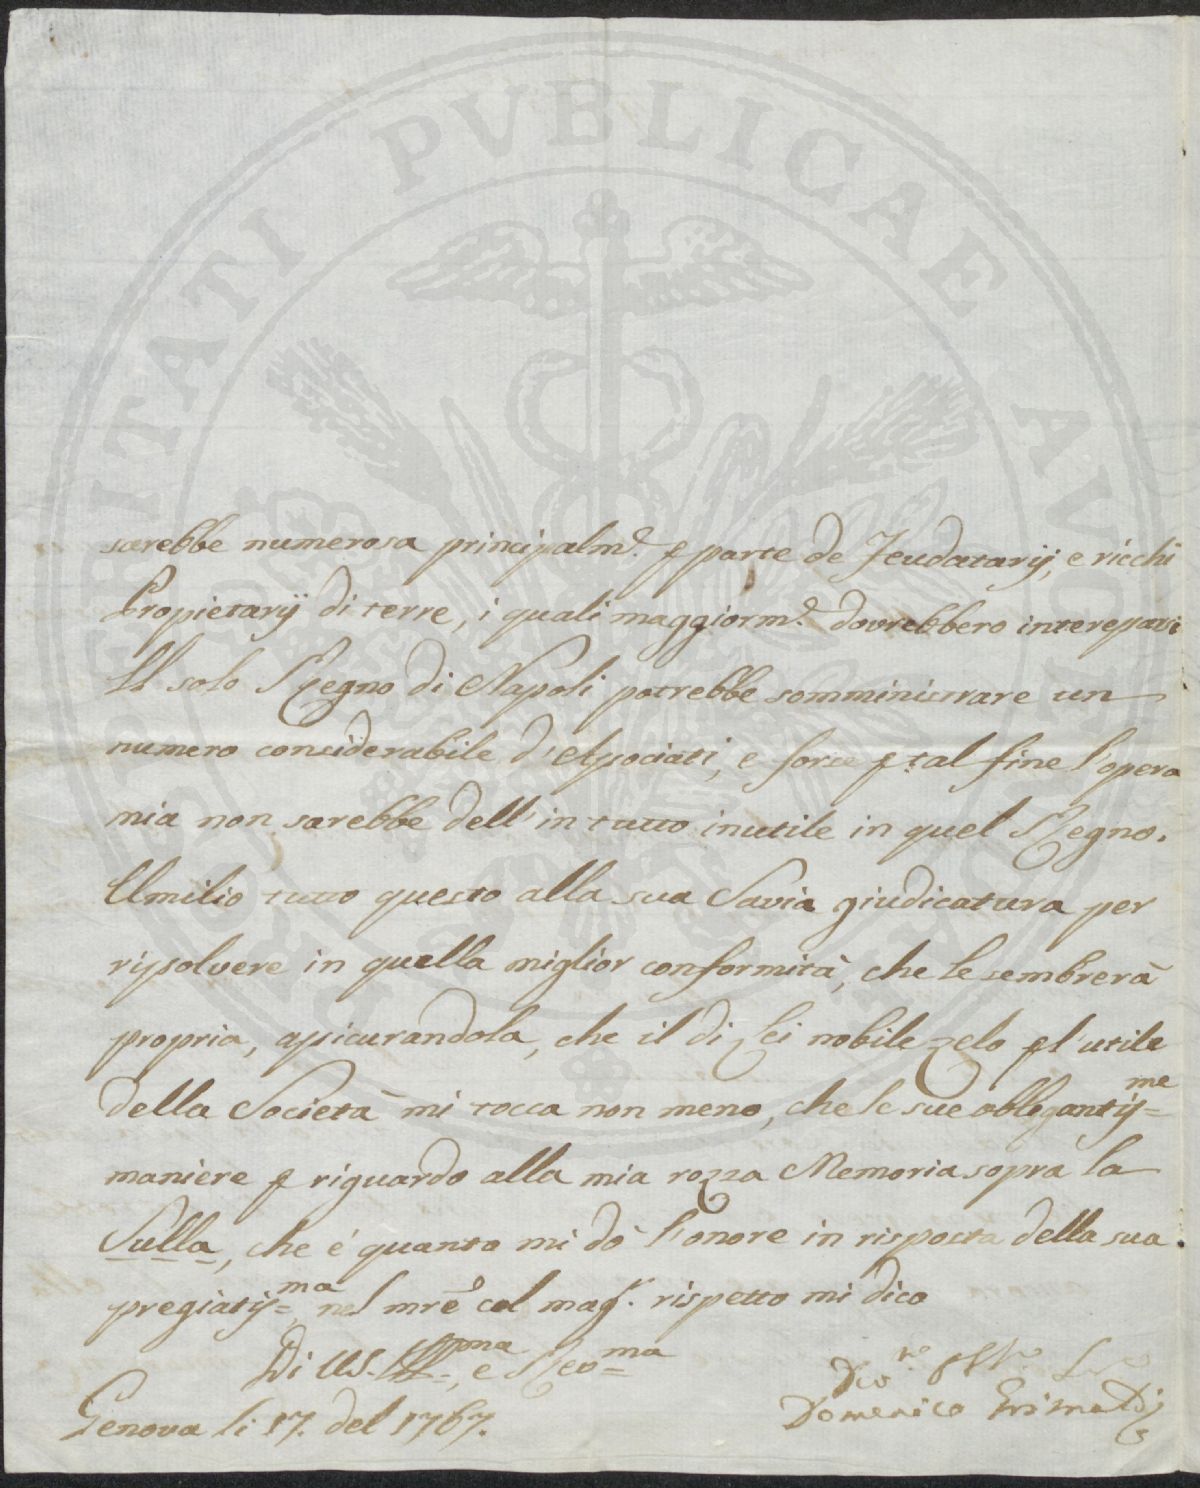 PVBLICAE
sarebbe numerosa principalm.e p parte de Feudatarij, e ricchi
Propietarij di terre, i quali maggiorm.e dovrebbero interessarsi
Il solo Regno di Napoli potrebbe somministrare un
numero considerabile d'Associati, e forse p tal fine l'opera
mia non sarebbe dell'in tutto inutile in quel Regno.
Umilio tutto questo alla sua Savia giudicatura per
rissolvere in quella miglior conformità, che le sembrerà
propria, assicurandola, che il di Lei nobile zelo p l'utile
della Società mi tocca non meno, che le sue obligantiss=me
maniere p riguardo alla mia rozza Memoria sopra la
Sulla, che è quanto mi dò l'onore in risposta della sua
pregiatiss=ma, nel mrē col mag.r rispetto mi dico
Di VS. Ill=ma, e Rev=ma
Genova li 17. del 1767.
Domenico Grimaldi